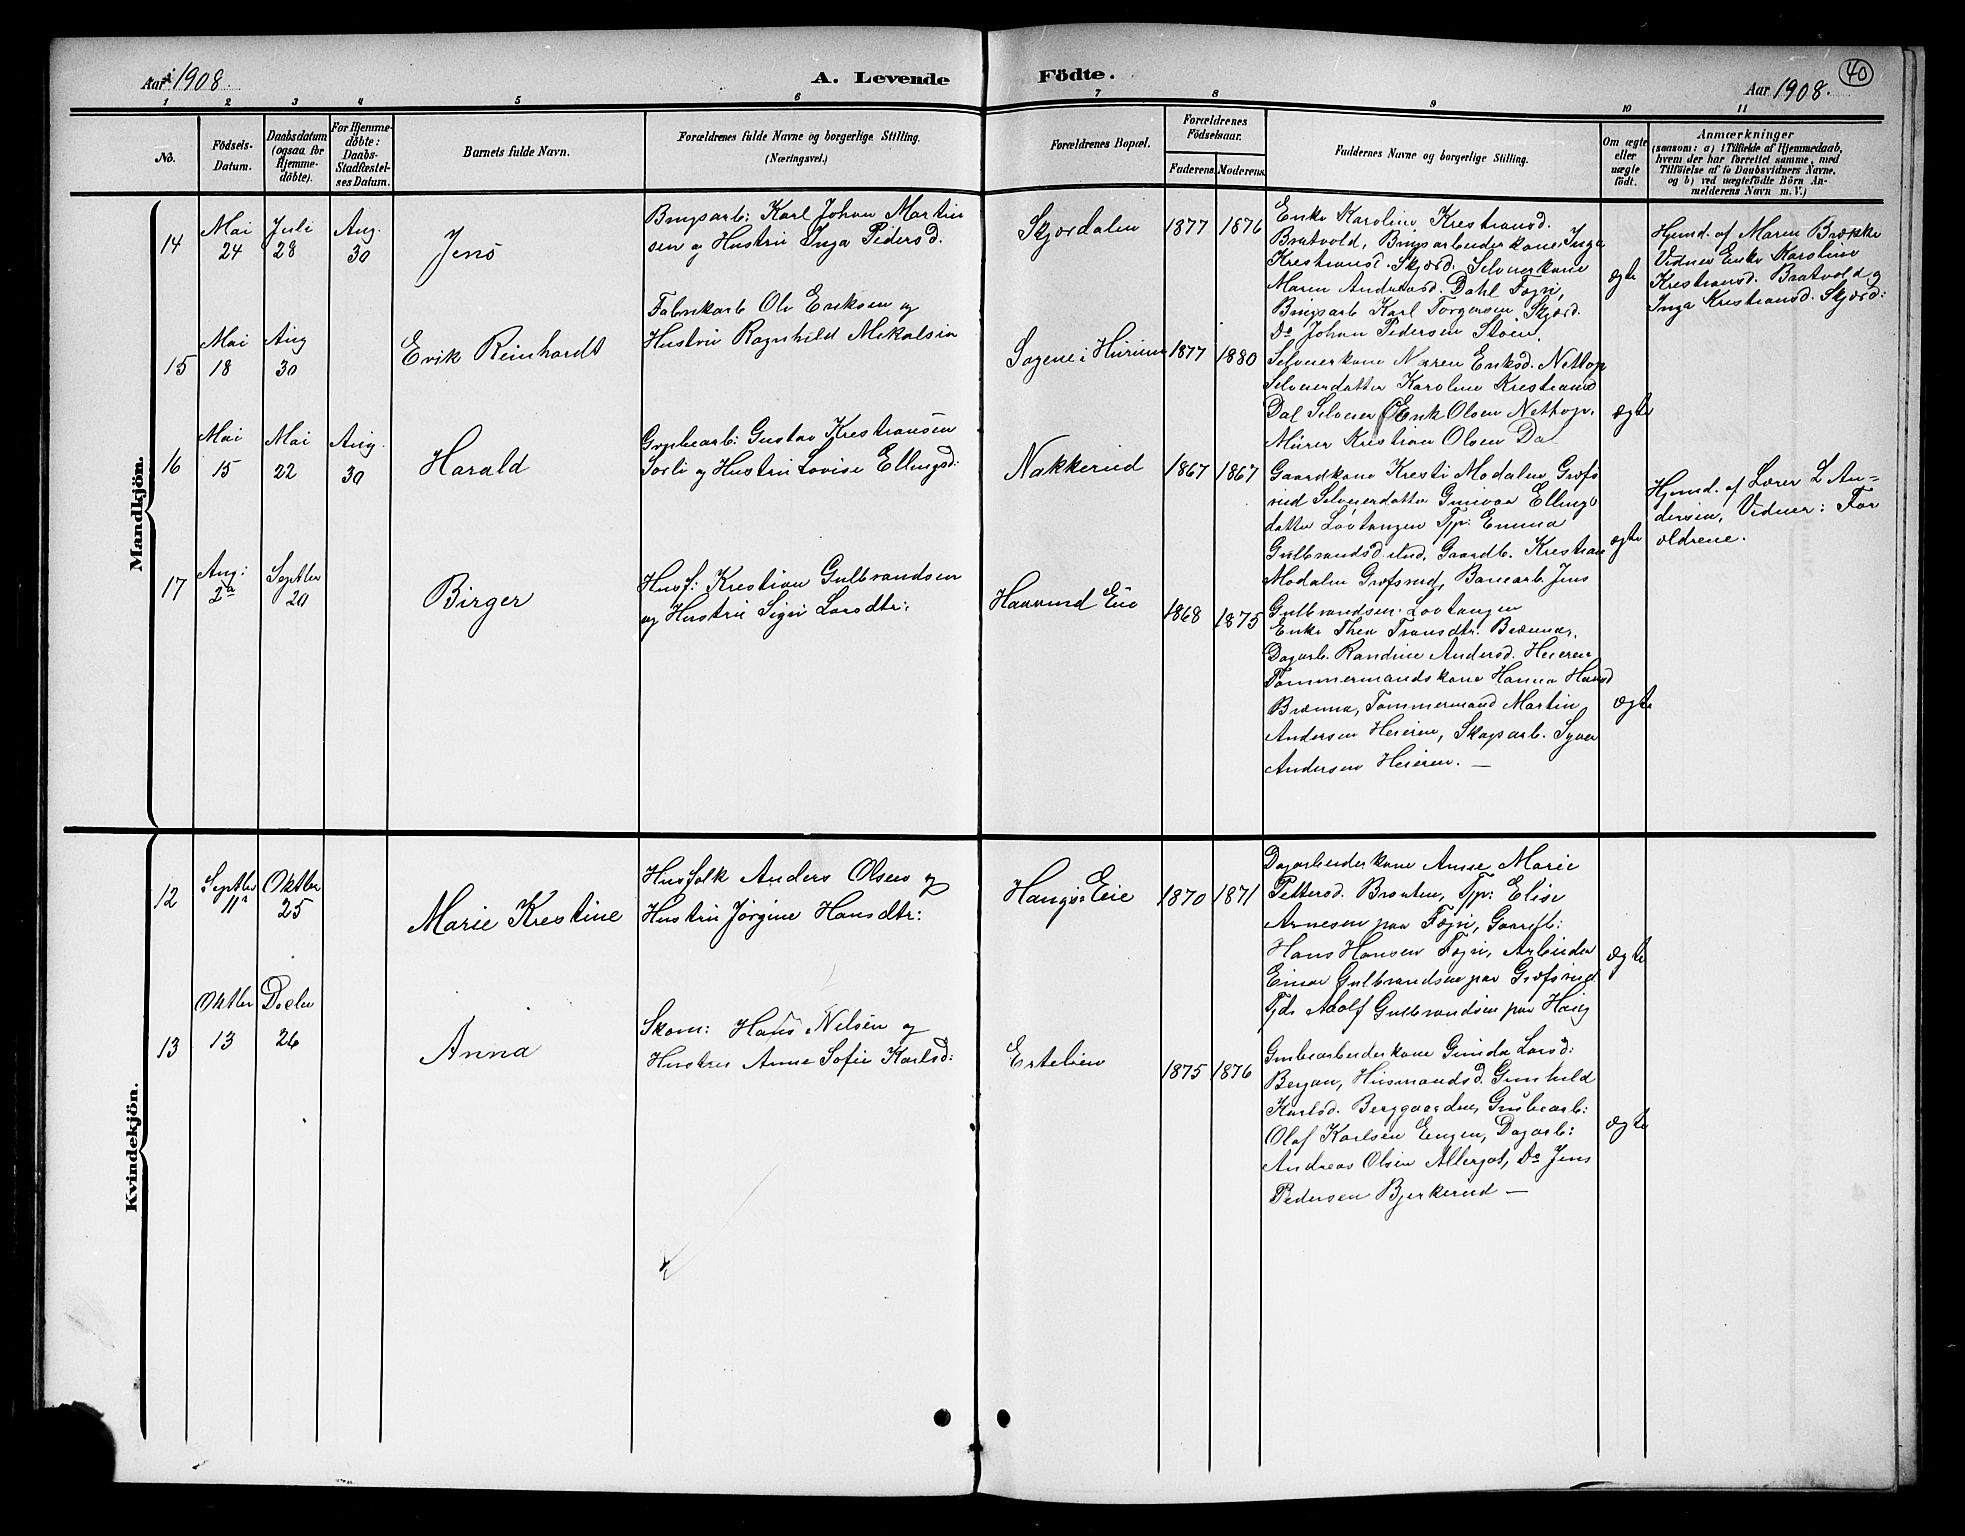 Aar 1908.
A. Levende
Födte.
Aar 1908.
40
1 2 3 4 5 6 7 8 9 10 11
No.
Födsels-
Datum.
Daabsdatum
(ogsaa for
Hjemme-
döbte).
For Hjemme-
döbte:
Daabs-
Stadfæstel-
ses Datum.
Barnets fulde Navn.
Forældrenes fulde Navne og borgerlige Stilling.
(Næringsvei.)
Forældrenes Bopæl.
Forældrenes
Födselsaar.
Faderens.
Moderens.
Faddernes Navne og borgerlige Stilling.
Om ægte
eller
uægte
födt.
Anmærkninger
(saasom: a) i Tilfælde af Hjemmedaab,
hvem der har forrettet samme, med
Tilföielse af to Daabsvidners Navne,
og b) ved uægtefödte Börn An-
melderens Navn m. V.)
Mandkjön.
14
Mai
24
Juli
28
Aug.
30
Jens
Brugsarb: Karl Johan Martin
sen og Hustru Inga Pedersd.
Skjørdalen
1877
1876
Enke Karoline Krestiansd.
Bratvold, Brugsarbeiderkone Inga
Krestiansd. Skjørd. Selveierkone
Maren Andreasd. Dahl Fegri,
Brugsarb Karl Torgersen Skjørd.
Do Johan Pedersen Stöien.
ægte
Hjemd. af Maren Brække
Vidner Enke Karoline
Krestiansd. Bratvold og
Inga Krestiansd. Skjørd:
15
Mai
18
Aug
30
Erik Reinhardt
Fabrikarb Ole Eriksen og
Hustru Ragnhild Mikalsen
Sagene i Hurum
1877
1880
Selveierkone Maren Eriksd. Nettop
Selveierdatter Karoline Krestiansd
Dal Selveier Erik Olsen Nettop,
Murer Kristian Olsen Dal
ægte
16
Mai
15
Mai
22
Aug.
30
Harald
Grubearb: Gustav Krestiansen
Sorli og Hustru Lovise Ellingsd:
Nakkerud
1867
1867
Gaardkone Kresti Modalen Græfs
rud Selveierdatter Gunvor Ellings
datter Lövtangen Tp: Emma
Gulbrandsd. Gaardb. Krestian
Modalen Græfsrud, Banearb. Jens
Gulbrandsen Lövtangen
ægte
Hjemd. af Lærer L An-
dersen, Vidner: For
ældrene.
17
Aug:
2a
Septbr
20
Birger
Husf: Krestian Gulbrandsen
og Hustru Sigri Larsdtr:
Haavrud Eie
1868
1875
Enke Thea Fransdtr. Brænna,
Dagarb. Randine Andersd. Heieren
Tømmermandskone Hanna Hansd
Brænna, Tømmermand Martin
Andersen Heieren, Skogsarb. Syver
Andersen Heieren. —
ægte
Kvindekjön.
12
Septbr
11
Oktbr
25
Marie Krestine
Husfolk Anders Olsen og
Hustru Jørgine Hansdtr:
Haugs Eie
1870
1871
Dagarbeiderkone Anne Marie
Pettersd. Braaten, Tp: Elise
Arnesen paa Fegri, Gaardb:
Hans Hansen Fegri, Arbeider
Einar Gulbrandsen paa Græfsrud
Tjd: Adolf Gulbrandsen paa Haug
ægte
13
Oktbr
13
Decbr
26
Anna
Skom: Hans Nilsen og
Hustru Anne Sofie Karlsd:
Ertelien
1875
1876
Grubearbeiderkone Gunda Larsd:
Bergan, Husmandsd. Gunhild
Karlsd. Berggaarden, Grubearb:
Olaf Karlsen Engen, Dagarb:
Andreas Olsen Allergot, Do Jens
Pedersen Bjerkerud —
ægte